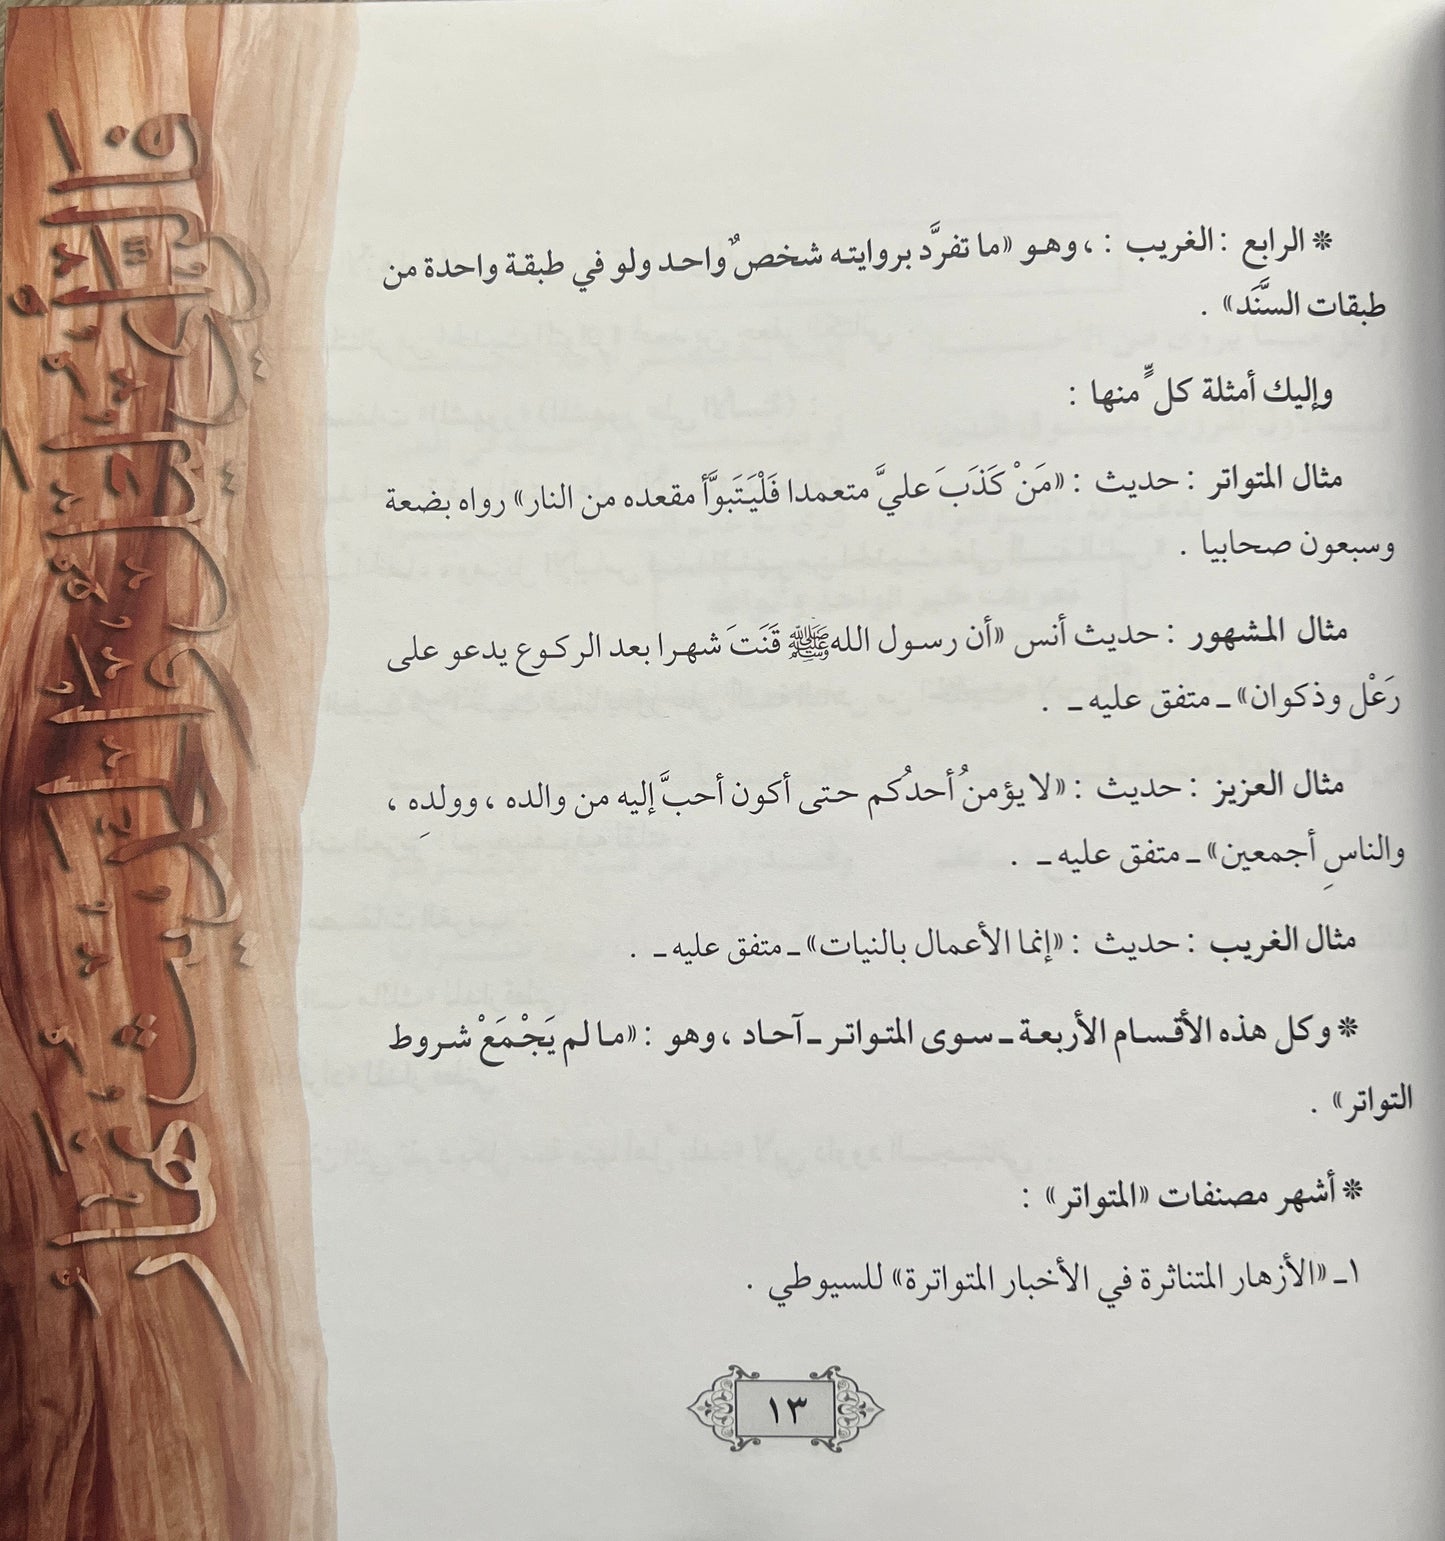 ❊ الرابع : الغريب : ، وهو «ما تفرَّد بروايته شخصٌ واحد ولو في طبقة واحدة من
طبقات السَّنَد» .
وإليك أمثلة كلٍّ منها :
مثال المتواتر : حديث : «مَنْ كَذَبَ عليَّ متعمدا فَلْيَتَبوَّأ مقعده من النار» رواه بضعة
وسبعون صحابيا .
مثال المشهور : حديث أنس «أن رسول الله ﷺ قَنَتَ شهرا بعد الركوع يدعو على
رَعْل وذكوان» ـ متفق عليه ـ .
مثال العزيز : حديث : «لا يؤمنُ أحدُكم حتى أكون أحبَّ إليه من والده ، وولدِه ،
والناسِ أجمعين» ـ متفق عليه ـ .
مثال الغريب : حديث : «إنما الأعمال بالنيات» ـ متفق عليه ـ .
❊ وكل هذه الأقسام الأربعة ـ سوى المتواتر ـ آحاد ، وهو : «ما لم يَجْمَعْ شروط
التواتر» .
❊ أشهر مصنفات «المتواتر» :
١ـ «الأزهار المتناثرة في الأخبار المتواترة» للسيوطي .
١٣